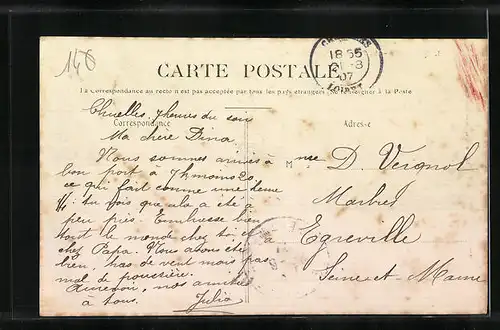 140
18 55
21 - 8
07
LOIRET
CARTE POSTALE
La Correspondance au recto n'est pas acceptée par tous les pays étrangers (Se renseigner à la Poste
Chuelles, 7 heures du soir
Correspondance
Adresse
Ma chère Dina
Nous sommes arrivés à
bon port à 7h moins 20
ce qui fait comme une heure
tu vois que cela a été à
peu près. Embrasse bien
tout le monde chez toi et
chez Papa. Nous avons été
bien, pas de vent mais pas
mal de poussière.
Aurevoir, nos amitiés
à tous. Julia
Mme D. Vergnol
Marbres
à Egreville
Seine-et-Marne